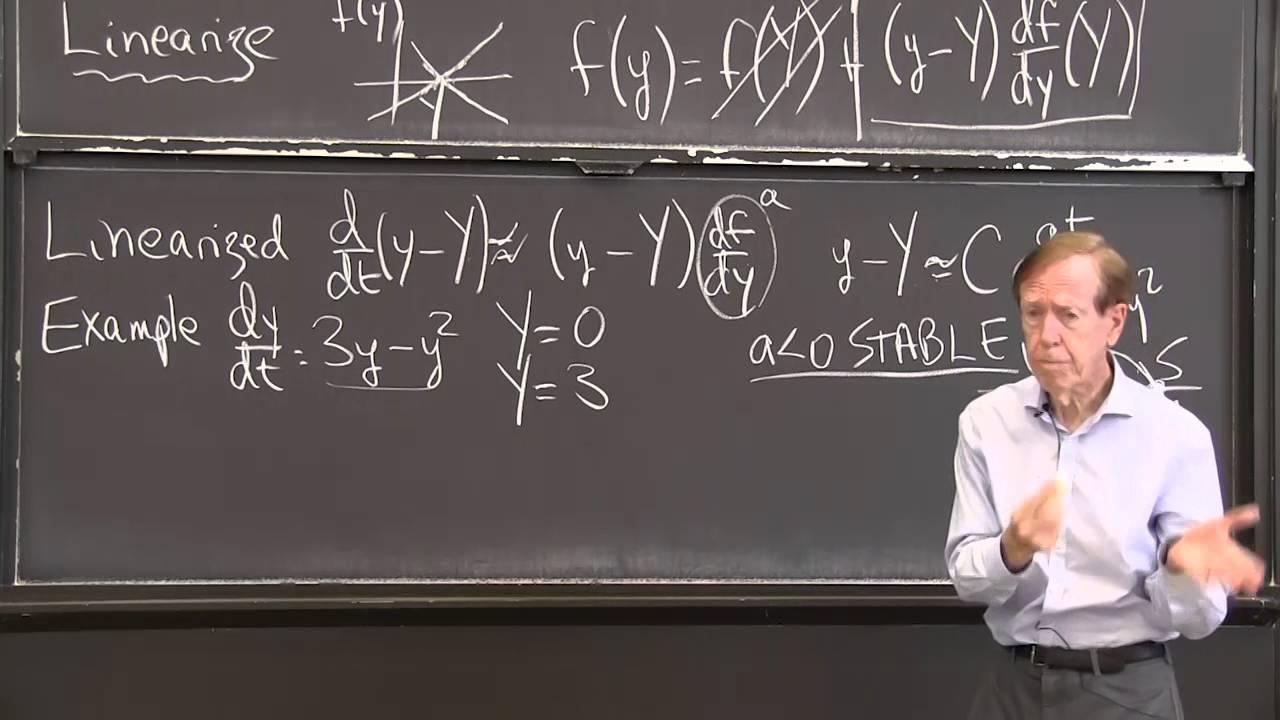 Linearize f(y) f(y) = f(Y) + (y-Y) df/dy (Y)
Linearized d/dt (y-Y) ≈ (y-Y) df/dy a y-Y ≈ C at
Example dy/dt = 3y-y² Y=0 a<0 STABLE y²
Y=3 S